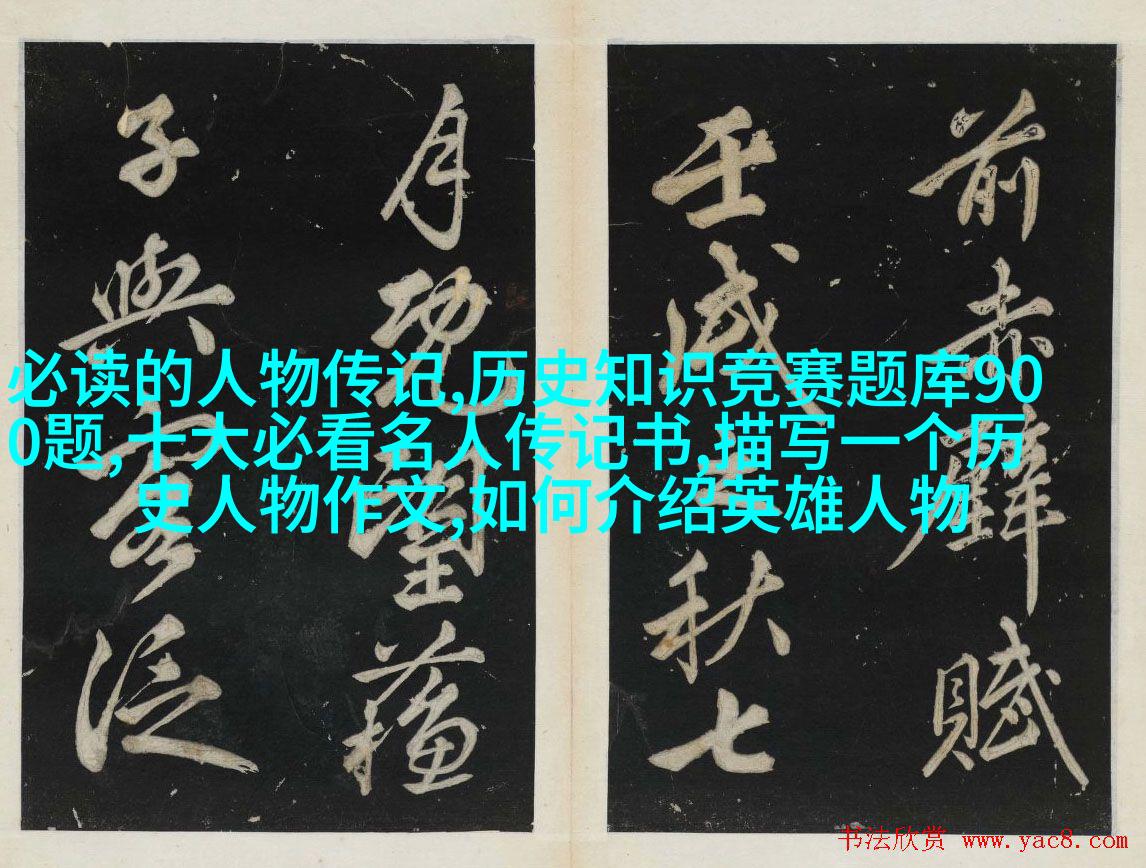 前赤壁賦
壬戌之秋七
月既望蘇
子與客泛
必读的人物传记,历史知识竞赛题库90
0题,十大必看名人传记书,描写一个历
史人物作文,如何介绍英雄人物
书法欣赏 www.yac8.com